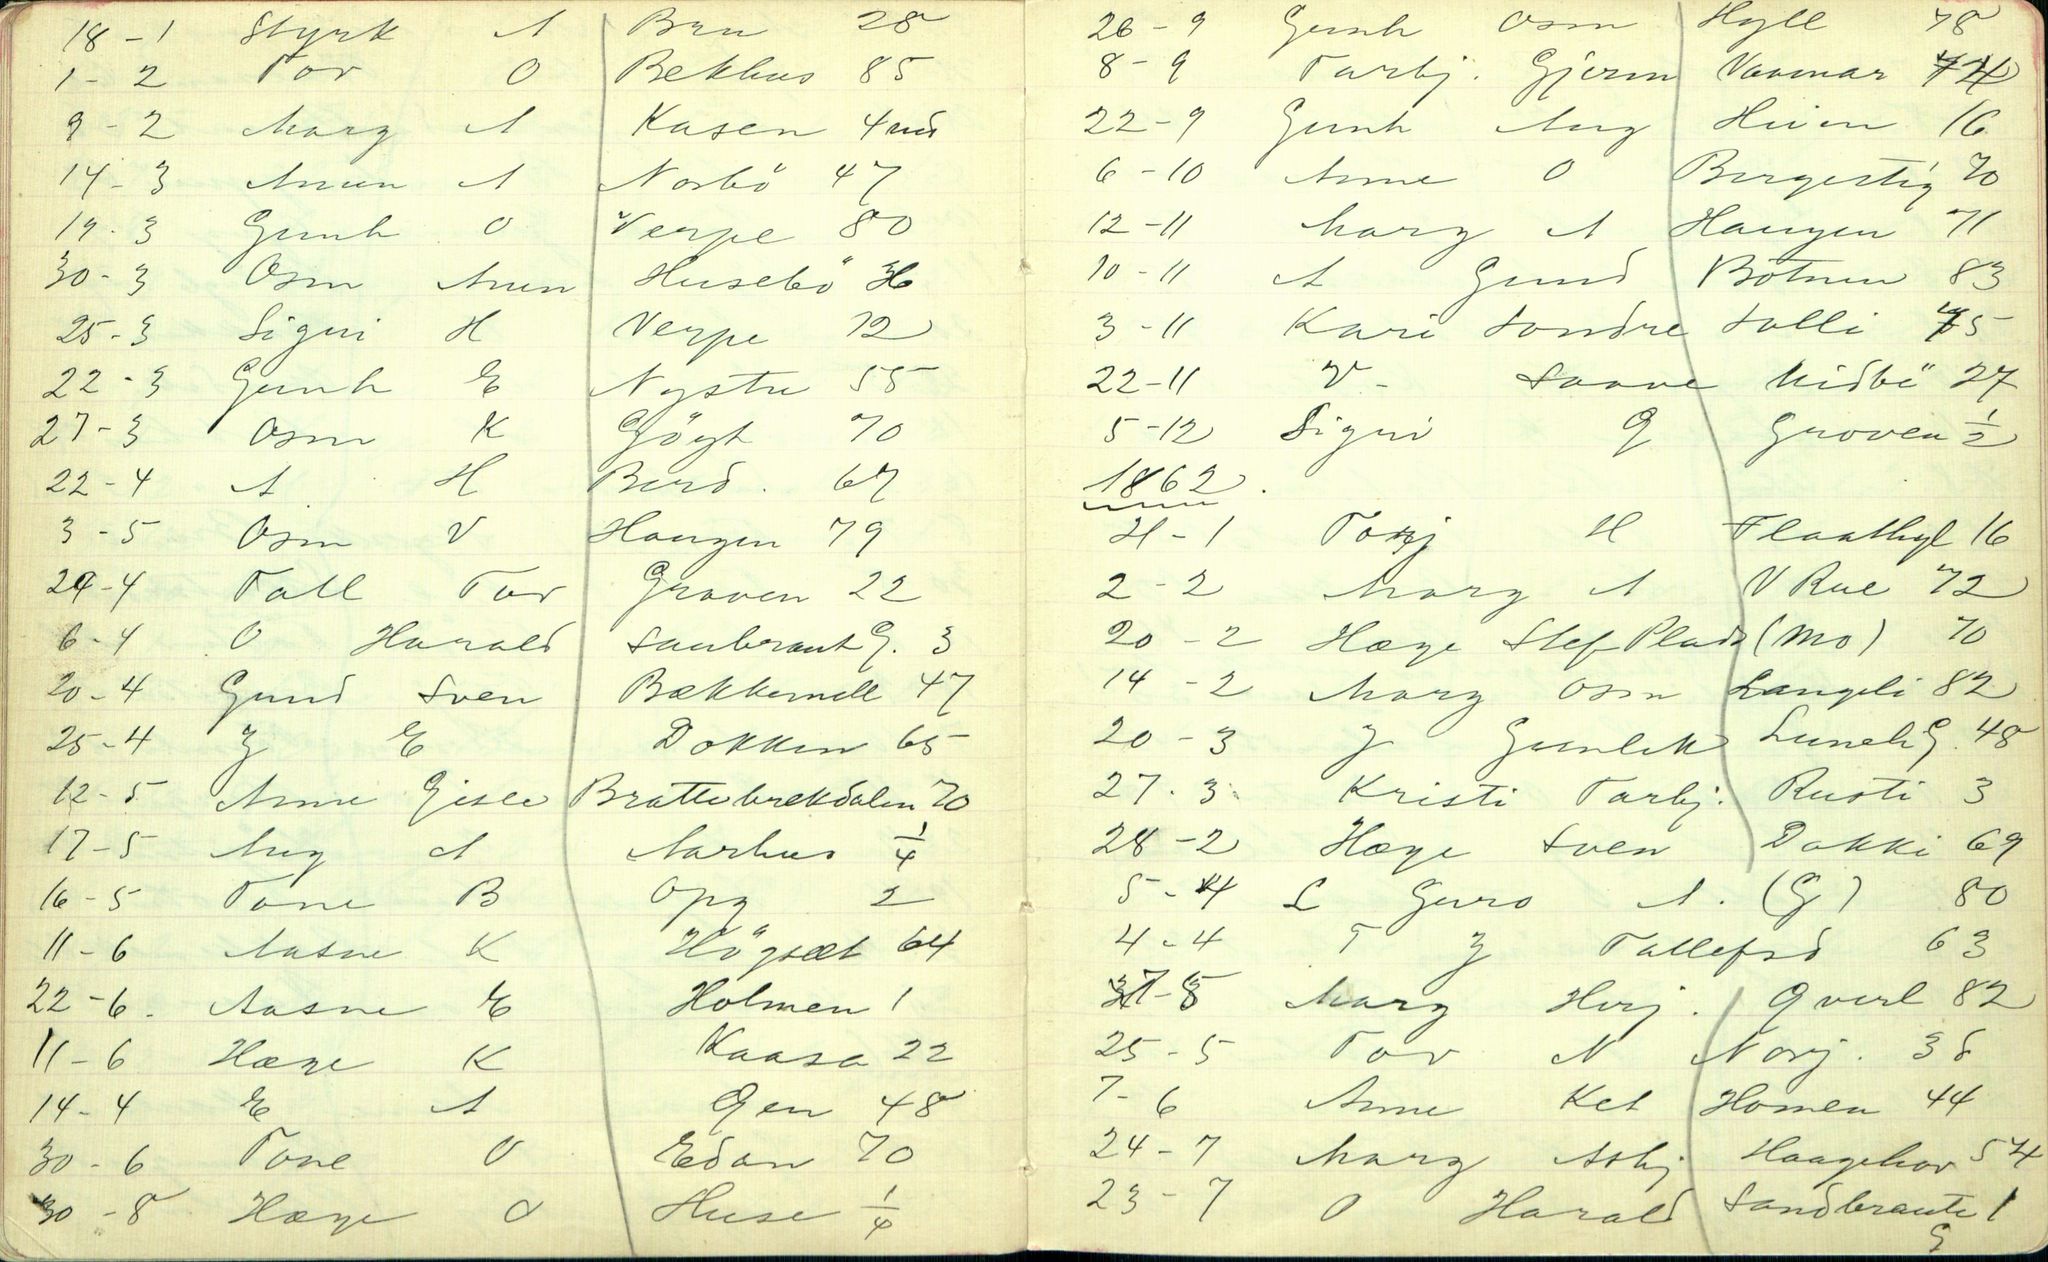 18-1 Styrk A Bru 28
1-2 Tov O Bekkhus 85
9-2 Marg A Kasen 4 md
14-3 Anun A Norbö 47
19-3 Gunh O Verpe 80
30-3 Osm Anun Husebö
25-3 Sigri H Verpe 12
22-3 Gunh E Nystu 55
27-3 Osm K Göyt 70
22-4 A H Burd. 67
3-5 Osm V Haugen 79
24-4 Tall Tov Graven 22
6-4 O Harald Sanbraut G. 3
20-4 Gund Sven Bækkemell 47
25-4 J E Dokken 65
12-5 Anne Gisle Brattebrekdalen 70
17-5 Aug A Aarhus 1/4
16-5 Tone B Opg 2
11-6 Aasne K Högsæt 64
22-6. Aasne E Holmen 1
11-6 Hæge K Kaasa 22
14-4 E A Qen 48
30-6 Tone O Edan 70
30-8 Hæge O Huse 1/4
26-9 Gunh Osm Hyll 78
8-9 Tarbj. Gjerm Vaamar
22-9 Gunh Aug Heim 16
6-10 Anne O Bergestig 70
12-11 Marg A Haugen 71
10-11 A Gund Bötnen 83
3-11 Kari Sondre Solli 75
22-11 V- Saave Midbö 27
5-12 Sigri G Groven 1/2
1862.
H-1 Torj H Flaathyl 16
2-2 Marg A V Rue 72
20-2 Hæge Stef Plads (Mo) 70
14-2 Marg Osm Langeli 82
20-3 J Gunlek Luneli G. 48
27.3. Kristi Tarbj. Rusti 3
28-2 Hæge Sven Dokki 69
5-4 L Guro A. (G) 80
4-4 T J Tallefsd 63
Marg Herj. Qverl 82
25-5 Tov N Norj. 38
7-6 Anne Ket Homen 44
24-7 Marg Asbj Haagehov 54
23-7 O Harald Sandbraute 1
G